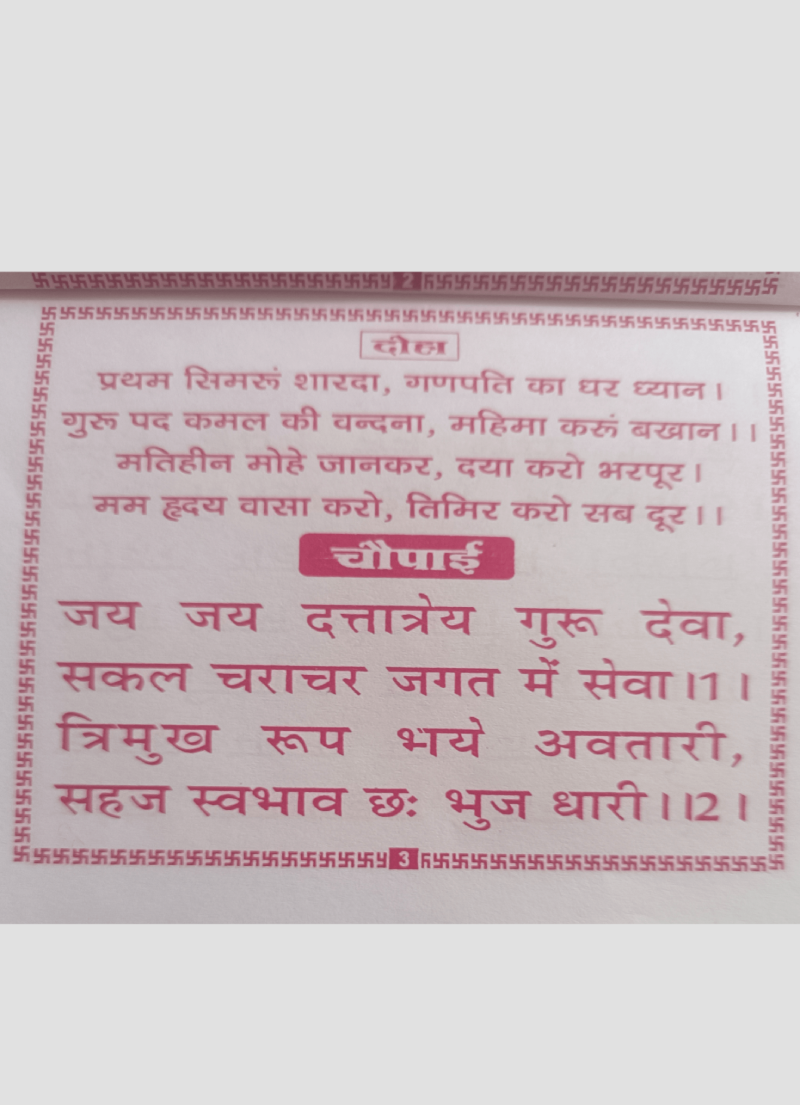 2
दोहा
प्रथम सिमरूं शारदा, गणपति का धर ध्यान।
गुरू पद कमल की वन्दना, महिमा करूं बखान।।
मतिहीन मोहे जानकर, दया करो भरपूर।
मम हृदय वासा करो, तिमिर करो सब दूर।।
चौपाई
जय जय दत्तात्रेय गुरू देवा,
सकल चराचर जगत में सेवा।1।
त्रिमुख रूप भये अवतारी,
सहज स्वभाव छः भुज धारी।।2।
3